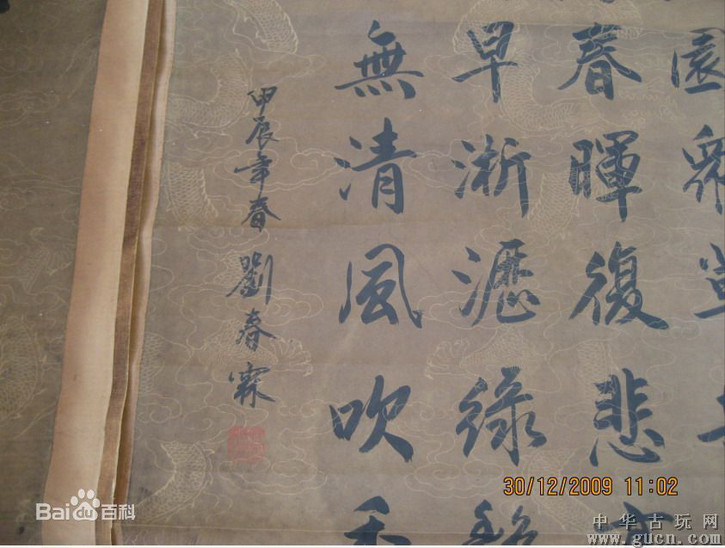 園
春暉復悲
早淅瀝綠
無清風吹
甲辰年春 劉春霖
30/12/2009 11:02
Bai du 百科
中华古玩网
www.gucn.com